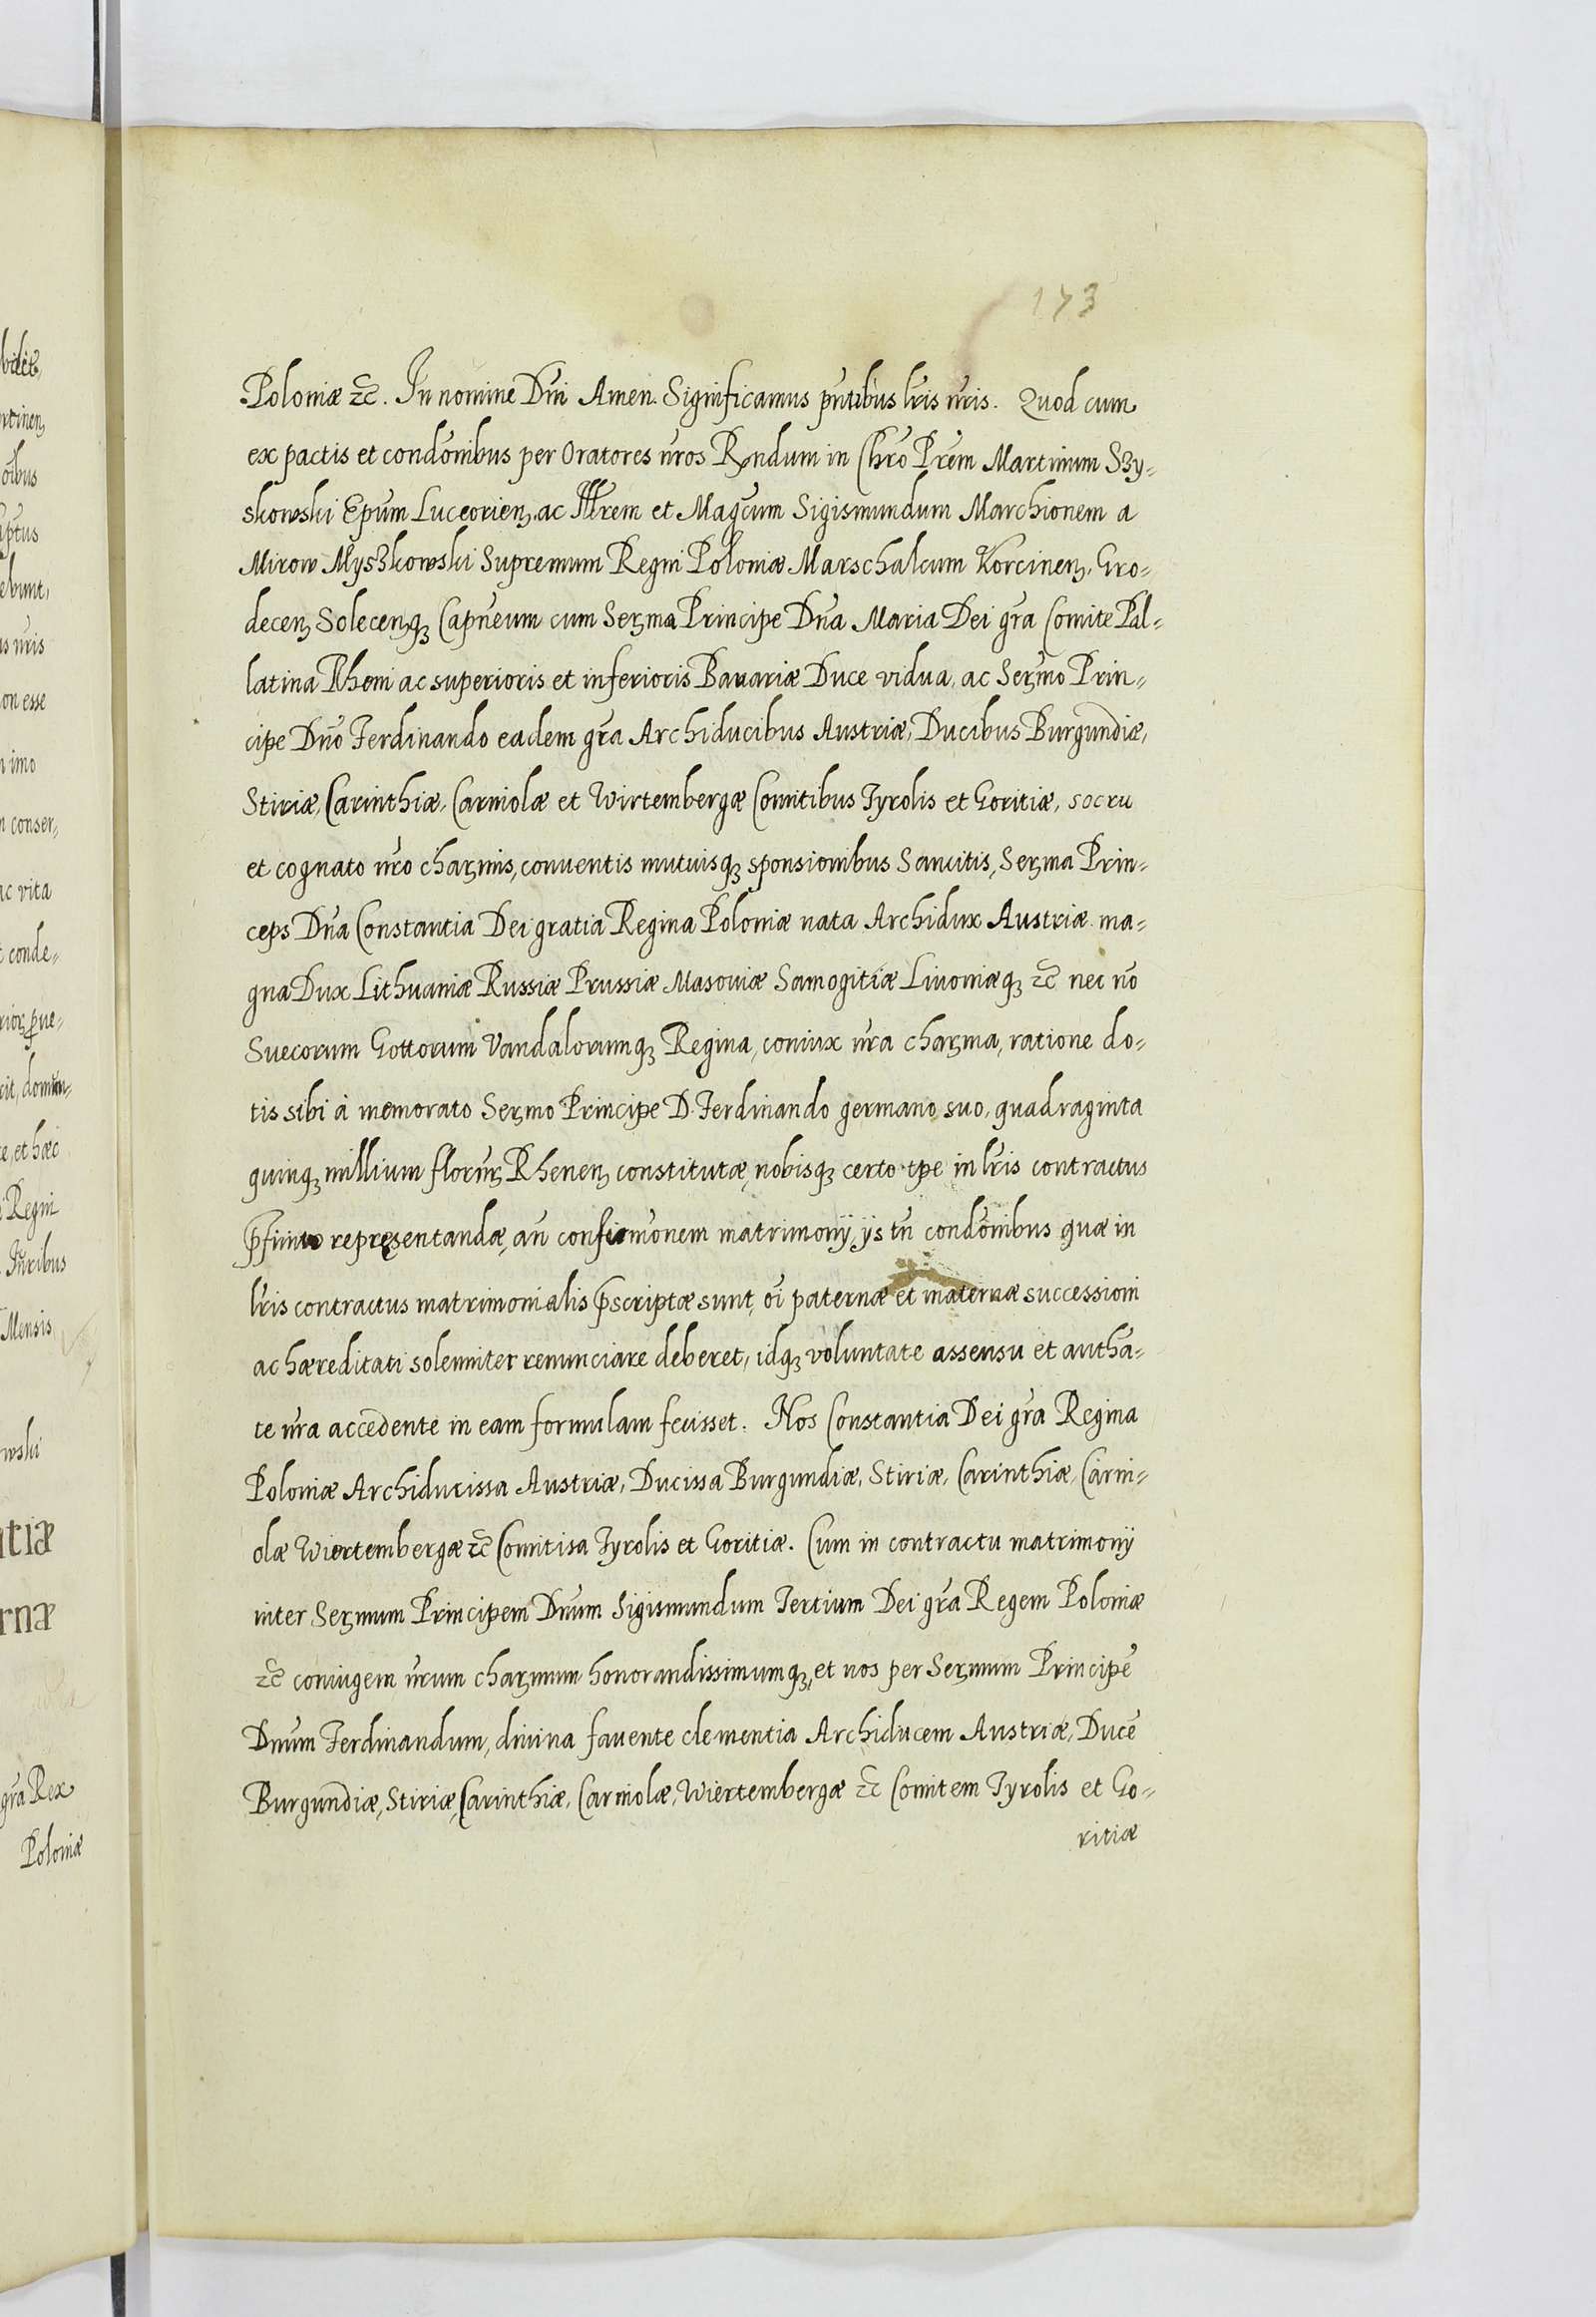 173
Poloniæ ꝛc̃. In nomine Dn̄i Amen. Significamus pn̄tibus lr̄is nr̄is. Quod cum
ex pactis et condo͞nibus per Oratores nr̄os Rn̄dum in Chr̄o Pr̄em Martinum Szy-
skowski Epūm Luceorienꝫ, ac Illr̄em et Magcūm Sigismundum Marchionem a
Mirow Myszkowski Supremum Regni Poloniæ Marschalcum Korcinenꝫ, Gro-
decenꝫ Solecenꝫqꝫ Capn̄eum cum Serꝫma Principe Dn̄a Maria Dei gr̄a Comite Pal-
latina Rheni ac superioris et inferioris Bauariæ Duce vidua, ac Serꝫmo Prin-
cipe Dn̄o Ferdinando eadem gr̄a Archiducibus Austriæ, Ducibus Burgundiæ,
Stiriæ, Carinthiæ, Carniolæ et Wirtembergæ Comitibus Tyrolis et Goritiæ, socru
et cognato nr̄o charꝫmis, conuentis mutuisqꝫ sponsionibus Sancitis, Serꝫma Prin-
ceps Dn̄a Constantia Dei gratia Regina Poloniæ nata Archidux Austriæ ma-
gna Dux Lithuaniæ Russiæ Prussiæ Masouiæ Samogitiæ Liuoniæqꝫ ꝛc̃ nec nō
Suecorum Gottorum Vandalorumqꝫ Regina, coniux nr̄a charꝫma, ratione do-
tis sibi à memorato Serꝫmo Principe D. Ferdinando germano suo, quadraginta
quinqꝫ millium florūꝫ Rhenenꝫ constitutæ, nobisqꝫ certo tp̄e in lr̄is contractus
p̄finito repręsentandæ, an̄ confirmōnem matrimonij, ijs tn̄ condōnibus quæ in
lr̄is contractus matrimonialis p̄scriptæ sunt, oī paternæ et maternæ successioni
ac hæreditati solenniter renunciare deberet, idqꝫ voluntate assensu et authā-
te nr̄a accedente in eam formulam fecisset. Nos Constantia Dei gr̄a Regina
Poloniæ Archiducissa Austriæ, Ducissa Burgundiæ, Stiriæ, Carinthiæ, Carni-
olæ Wiertembergæ ꝛc̃ Comitisa Tyrolis et Goritiæ. Cum in contractu matrimonij
inter Serꝫmum Principem Dn̄um Sigismundum Tertium Dei gr̄a Regem Poloniæ
ꝛc̃ coniugem nr̄um charꝫmum honorandissimumqꝫ, et nos per Serꝫmum Principē
Dn̄um Ferdinandum, diuina fauente clementia Archiducem Austriæ, Ducē
Burgundiæ, Stiriæ, Carinthiæ, Carniolæ, Wiertembergæ ꝛc̃ Comitem Tyrolis et Go-
ritiæ